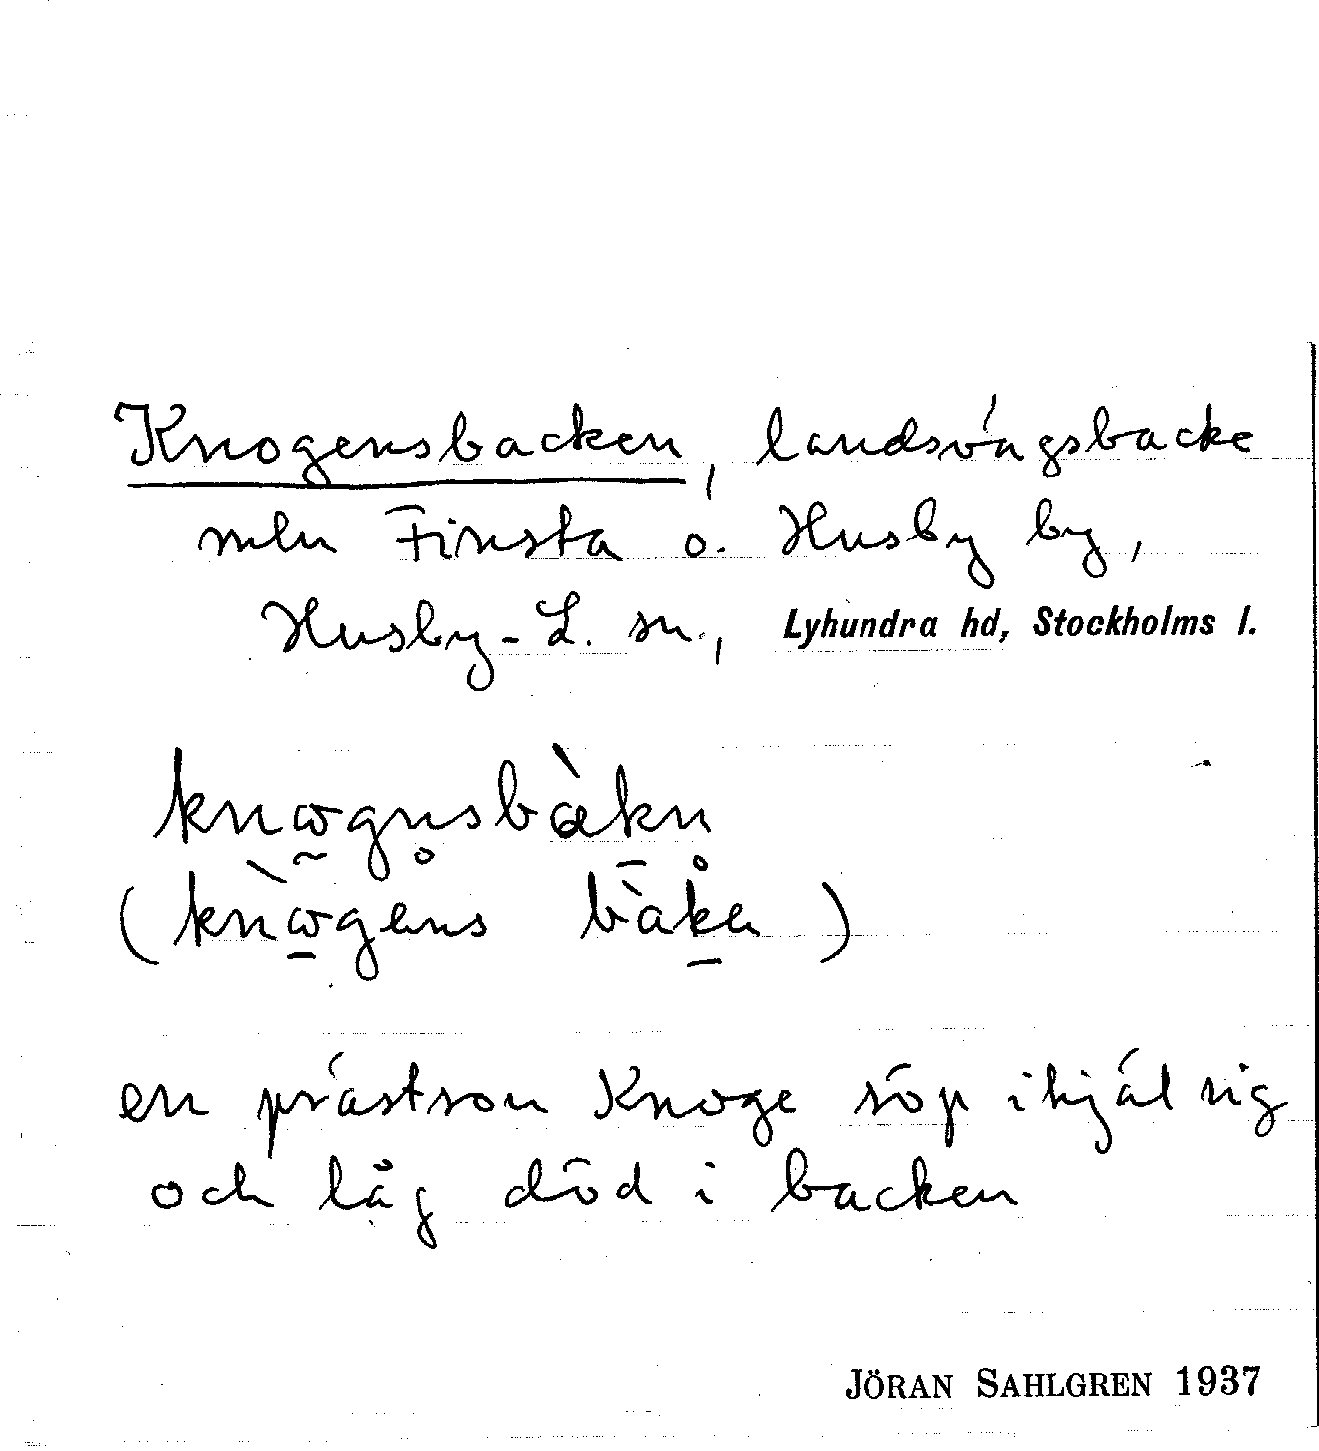 Knogensbacken, landsvägsbacke
mln Finsta o. Husby by,
Husby-L. sn., Lyhundra hd, Stockholms l.
knωgnsbàkn
(knὼgens bàken)
en prästson Knoge söp ihjäl sig
och låg död i backen
JÖRAN SAHLGREN 1937